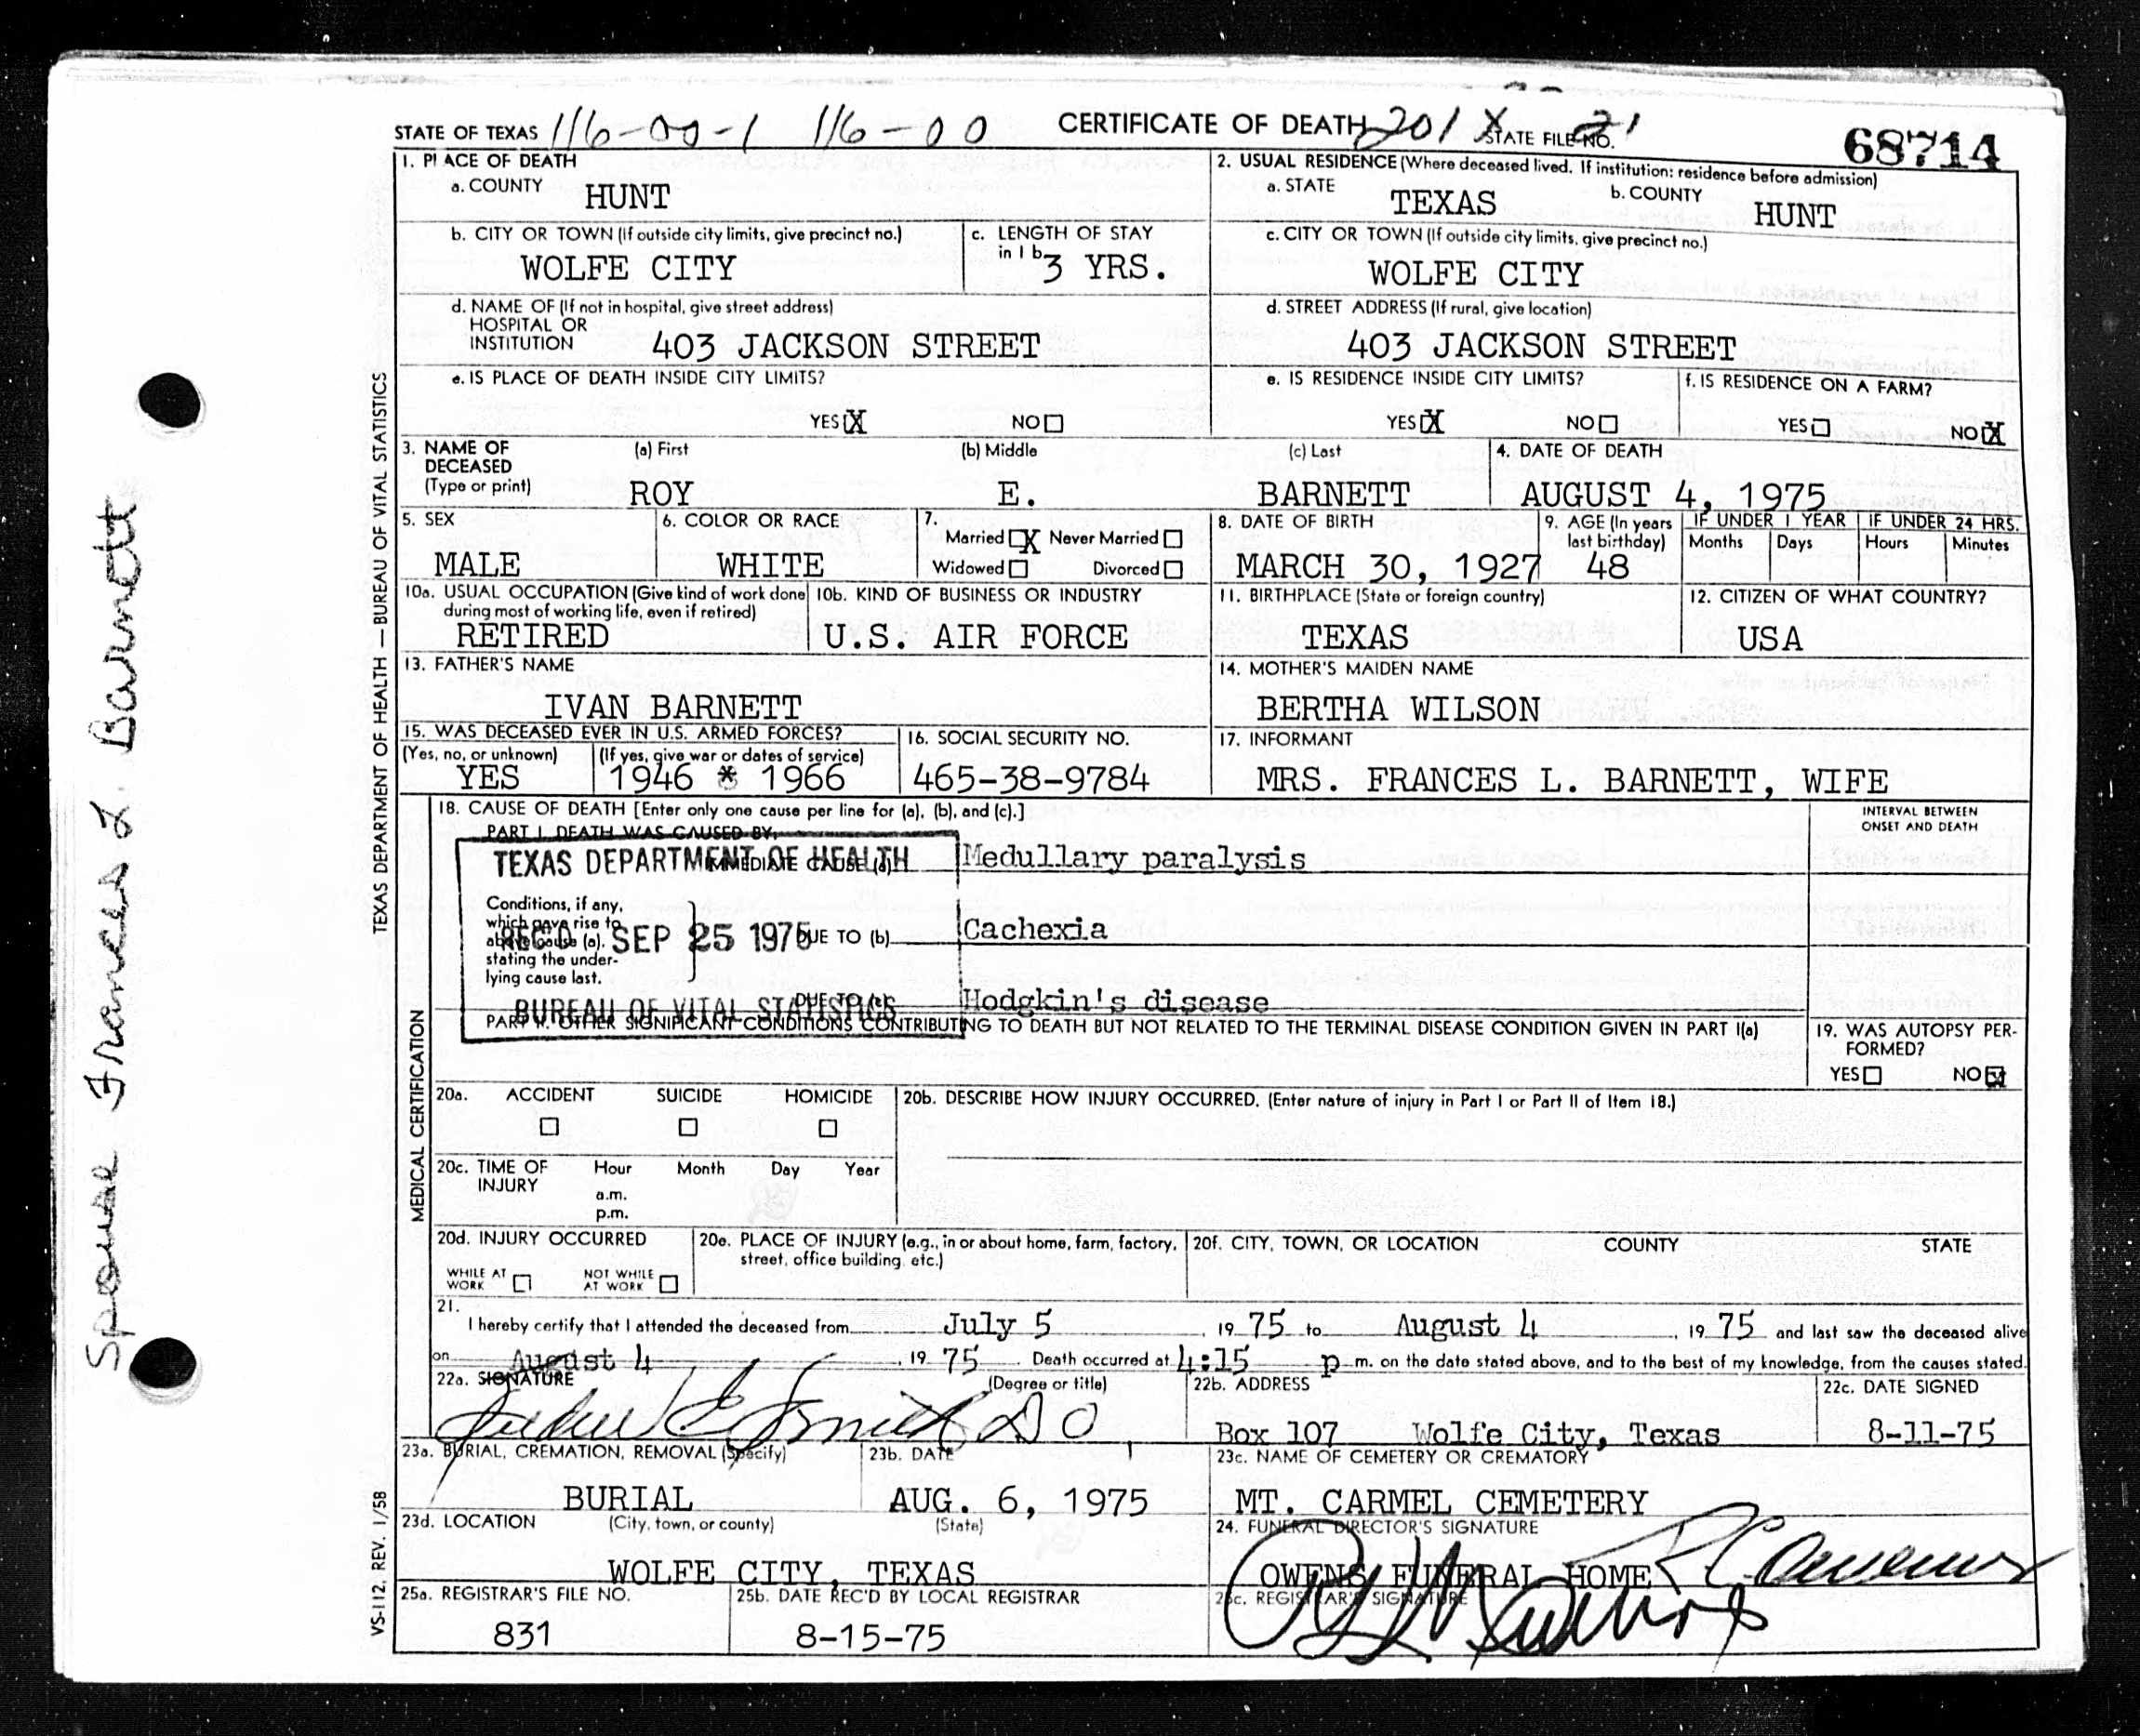 STATE OF TEXAS 116-00-1 116-00 CERTIFICATE OF DEATH 201 X STATE FILE NO. 21 68714
1. PLACE OF DEATH
a. COUNTY HUNT
2. USUAL RESIDENCE (Where deceased lived. If institution: residence before admission)
a. STATE TEXAS b. COUNTY HUNT
b. CITY OR TOWN (If outside city limits, give precinct no.) WOLFE CITY
c. LENGTH OF STAY in 1 b 3 YRS.
c. CITY OR TOWN (If outside city limits, give precinct no.) WOLFE CITY
d. NAME OF (If not in hospital, give street address)
HOSPITAL OR
INSTITUTION 403 JACKSON STREET
d. STREET ADDRESS (If rural, give location)
403 JACKSON STREET
e. IS PLACE OF DEATH INSIDE CITY LIMITS?
YES X NO
e. IS RESIDENCE INSIDE CITY LIMITS?
YES X NO
f. IS RESIDENCE ON A FARM?
YES NO X
3. NAME OF DECEASED (Type or print)
(a) First ROY
(b) Middle E.
(c) Last BARNETT
4. DATE OF DEATH
AUGUST 4, 1975
5. SEX
MALE
6. COLOR OR RACE
WHITE
7.
Married X Never Married
Widowed Divorced
8. DATE OF BIRTH
MARCH 30, 1927
9. AGE (In years last birthday)
48
IF UNDER 1 YEAR
Months Days
IF UNDER 24 HRS.
Hours Minutes
10a. USUAL OCCUPATION (Give kind of work done during most of working life, even if retired)
RETIRED
10b. KIND OF BUSINESS OR INDUSTRY
U.S. AIR FORCE
11. BIRTHPLACE (State or foreign country)
TEXAS
12. CITIZEN OF WHAT COUNTRY?
USA
13. FATHER'S NAME
IVAN BARNETT
14. MOTHER'S MAIDEN NAME
BERTHA WILSON
15. WAS DECEASED EVER IN U.S. ARMED FORCES?
(Yes, no, or unknown) YES
(If yes, give war or dates of service)
1946 * 1966
16. SOCIAL SECURITY NO.
465-38-9784
17. INFORMANT
MRS. FRANCES L. BARNETT, WIFE
18. CAUSE OF DEATH [Enter only one cause per line for (a), (b), and (c).]
INTERVAL BETWEEN
ONSET AND DEATH
PART I. DEATH WAS CAUSED BY:
IMMEDIATE CAUSE (a) Medullary paralysis
TEXAS DEPARTMENT OF HEALTH
Conditions, if any,
which gave rise to
above cause (a),
stating the under-
lying cause last.
REC'D SEP 25 1975
DUE TO (b) Cachexia
DUE TO (c) Hodgkin's disease
BUREAU OF VITAL STATISTICS
PART II. OTHER SIGNIFICANT CONDITIONS CONTRIBUTING TO DEATH BUT NOT RELATED TO THE TERMINAL DISEASE CONDITION GIVEN IN PART I(a)
19. WAS AUTOPSY PER-
FORMED?
YES NO X
20a. ACCIDENT SUICIDE HOMICIDE
20b. DESCRIBE HOW INJURY OCCURRED. (Enter nature of injury in Part I or Part II of Item 18.)
20c. TIME OF INJURY
Hour Month Day Year
a.m.
p.m.
20d. INJURY OCCURRED
WHILE AT WORK NOT WHILE AT WORK
20e. PLACE OF INJURY (e.g., in or about home, farm, factory, street, office building, etc.)
20f. CITY, TOWN, OR LOCATION COUNTY STATE
21.
I hereby certify that I attended the deceased from July 5, 19 75 to August 4, 19 75 and last saw the deceased alive
on August 4, 19 75. Death occurred at 4:15 p m. on the date stated above, and to the best of my knowledge, from the causes stated.
22a. SIGNATURE (Degree or title)
E Smith D O
22b. ADDRESS
Box 107 Wolfe City, Texas
22c. DATE SIGNED
8-11-75
23a. BURIAL, CREMATION, REMOVAL (Specify)
BURIAL
23b. DATE
AUG. 6, 1975
23c. NAME OF CEMETERY OR CREMATORY
MT. CARMEL CEMETERY
23d. LOCATION (City, town, or county) (State)
WOLFE CITY, TEXAS
24. FUNERAL DIRECTOR'S SIGNATURE
OWENS FUNERAL HOME
25a. REGISTRAR'S FILE NO.
831
25b. DATE REC'D BY LOCAL REGISTRAR
8-15-75
25c. REGISTRAR'S SIGNATURE
TEXAS DEPARTMENT OF HEALTH — BUREAU OF VITAL STATISTICS
MEDICAL CERTIFICATION
VS-112, REV. 1/58
Spouse Frances L Barnett